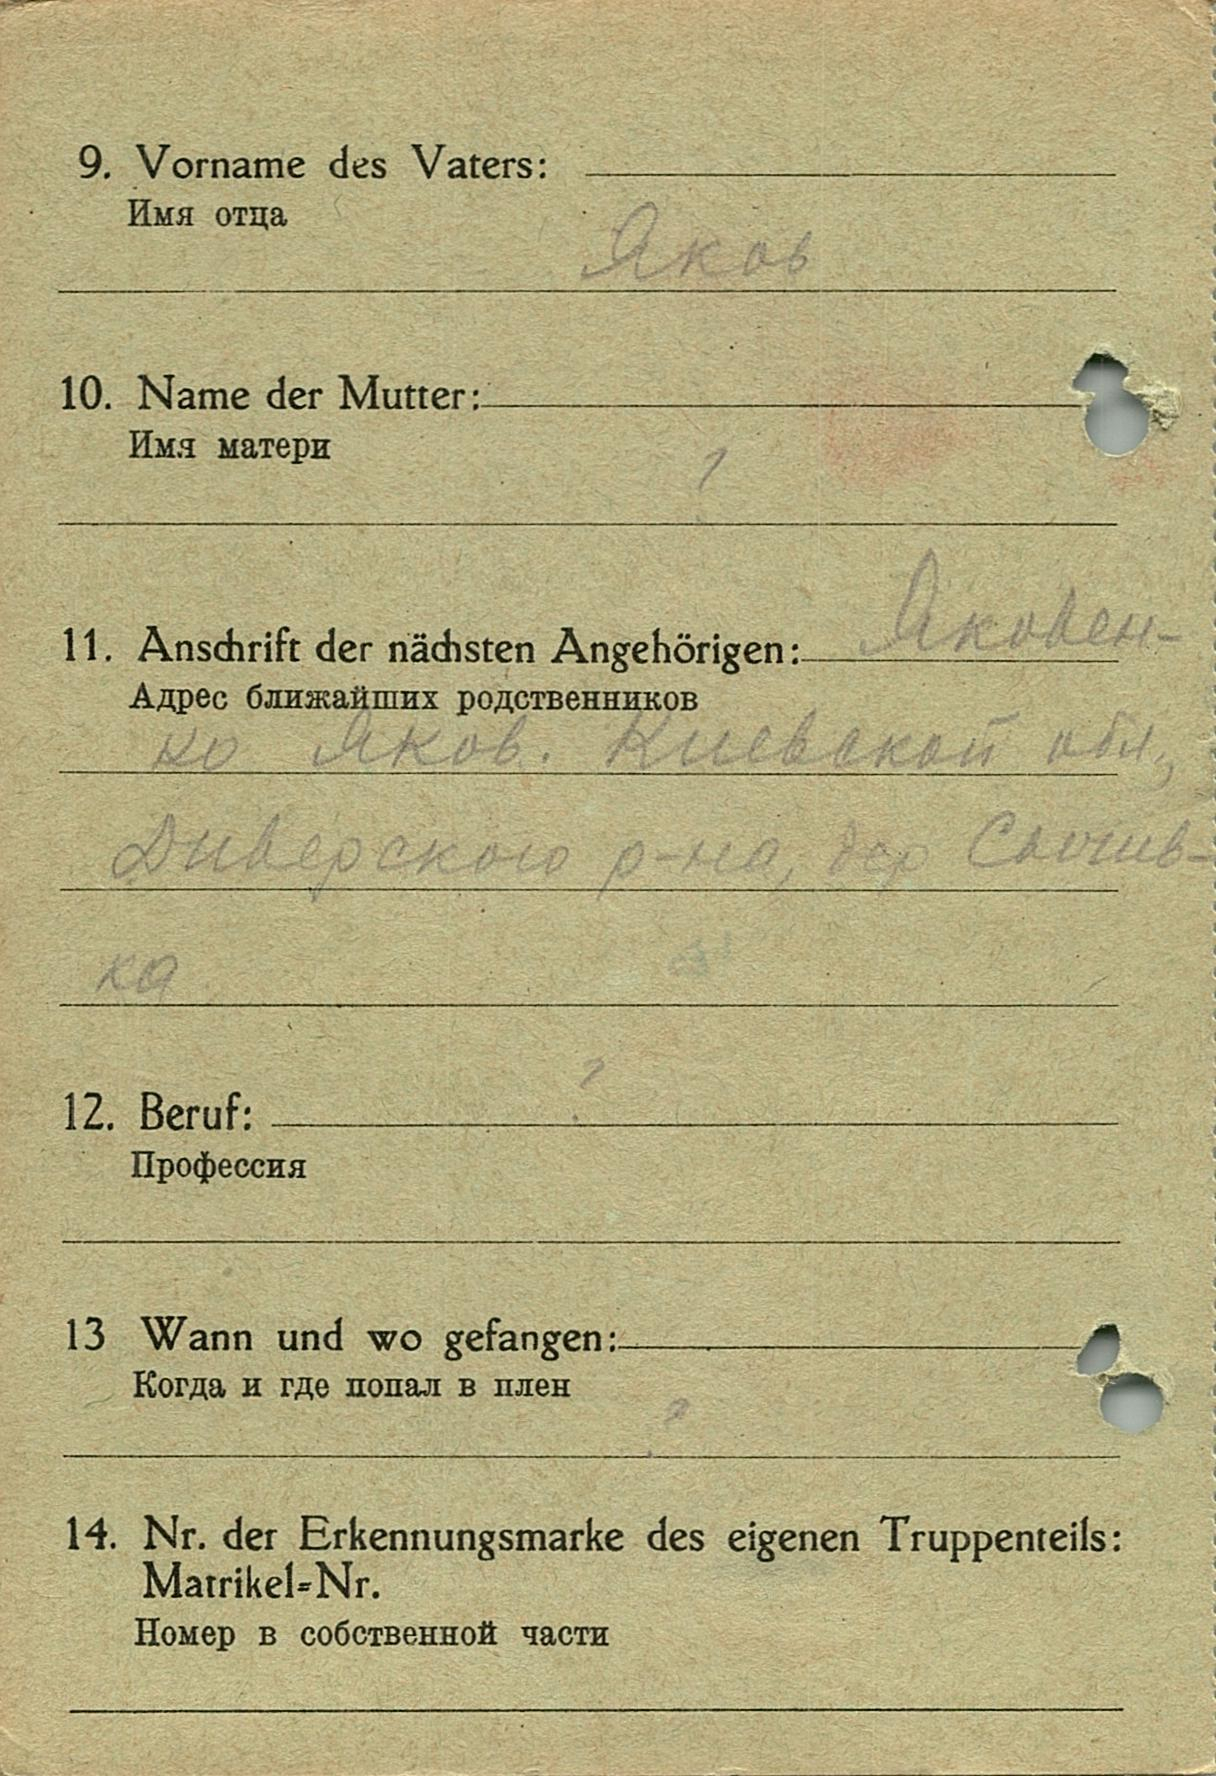 9. Vorname des Vaters:
Имя отца
Яков
10. Name der Mutter:
Имя матери
?
Яковен-
11. Anschrift der nächsten Angehörigen:
Адрес ближайших родственников
ко Яков. Киевской обл,
Диверского р-на, дер
ка
?
12. Beruf:
Профессия
13 Wann und wo gefangen:
Когда и где попал в плен
?
14. Nr. der Erkennungsmarke des eigenen Truppenteils:
Matrikel=Nr.
Номер в собственной части